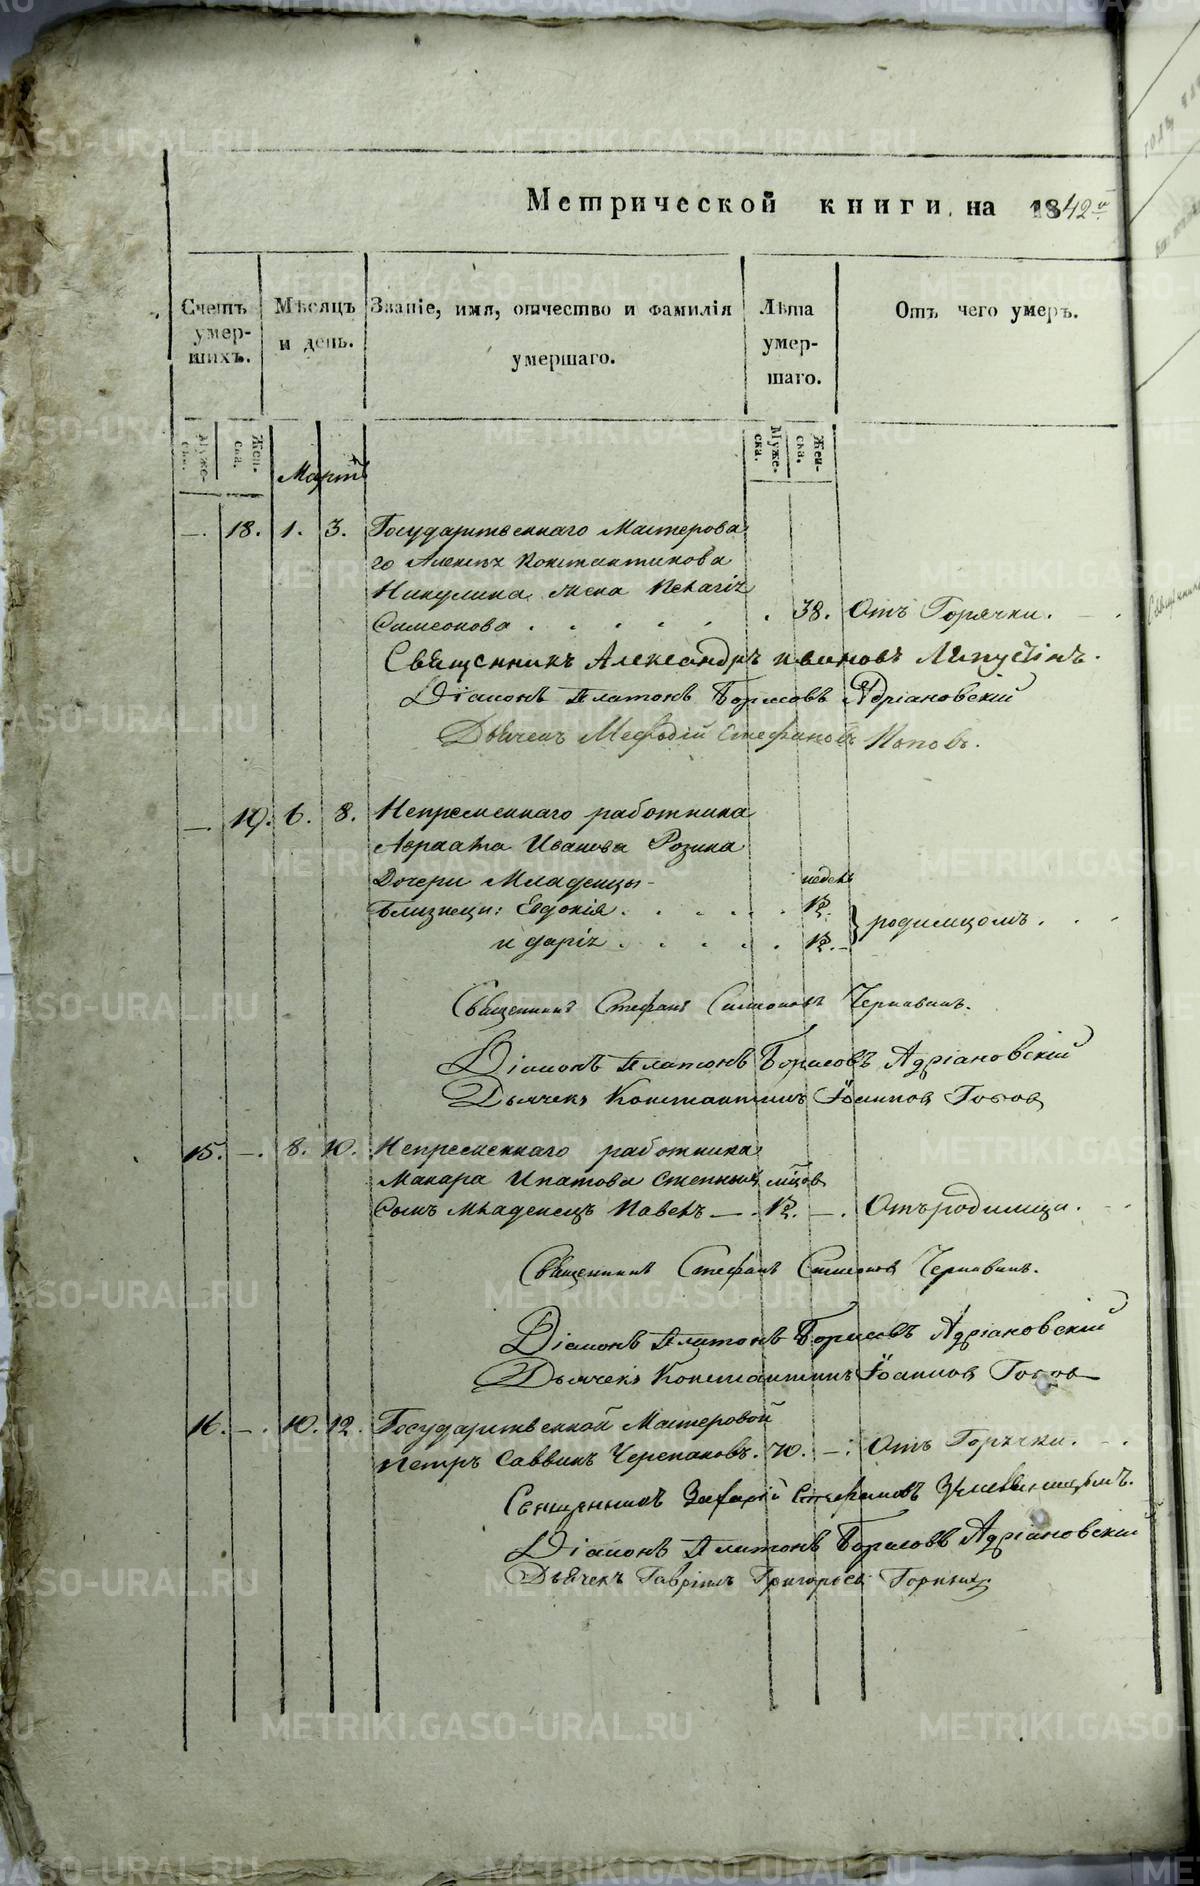 Метрической книги на 1842й
Счетъ умер- шихъ.
Мѣсяцъ и день.
Званіе, имя, отчество и фамилія умершаго.
Лѣта умер- шаго.
Отъ чего умеръ.
Муже- ска. Жен- ска.
Муже- ска. Жен- ска.
Мартъ
—. 18. 1. 3. Государственнаго Мастерова
го Алексѣя Константинова
Никулина жена Пелагія
Симеонова . . . . . . 38. Отъ Горячки.
Священникъ Александръ Ивановъ Липустинъ.
Діаконъ Платонъ Борисовъ Адріановскій
Дьячекъ Меѳодій Стефановъ Поповъ.
—. 19. 6. 8. Непременнаго работника
Иванова Розина
Дочери Младенцы недель
Близнецы: Евдокія . . . . . 12.
и дарія . . . . . 12. родимцомъ.
Священникъ Стефанъ Симеоновъ Чернавинъ.
Діаконъ Платонъ Борисовъ Адріановскій
Дьячекъ Константинъ Іоанновъ
15. —. 8. 10. Непременнаго работника
Макара Ипатова мцов
Сынъ младенецъ Павелъ —. 12. —. Отъ родимца.
Священникъ Стефанъ Симеоновъ Чернавинъ.
Діаконъ Платонъ Борисовъ Адріановскій
Дьячекъ Константинъ Іоанновъ
16. —. 10. 12. Государственной Мастеровой
Петръ Саввинъ Черепановъ. 70. —. Отъ Горячки.
Священникъ Стефановъ
Діаконъ Платонъ Борисовъ Адріановскій
Дьячекъ Гавріилъ Григорьевъ
METRIKI.GASO-URAL.RU